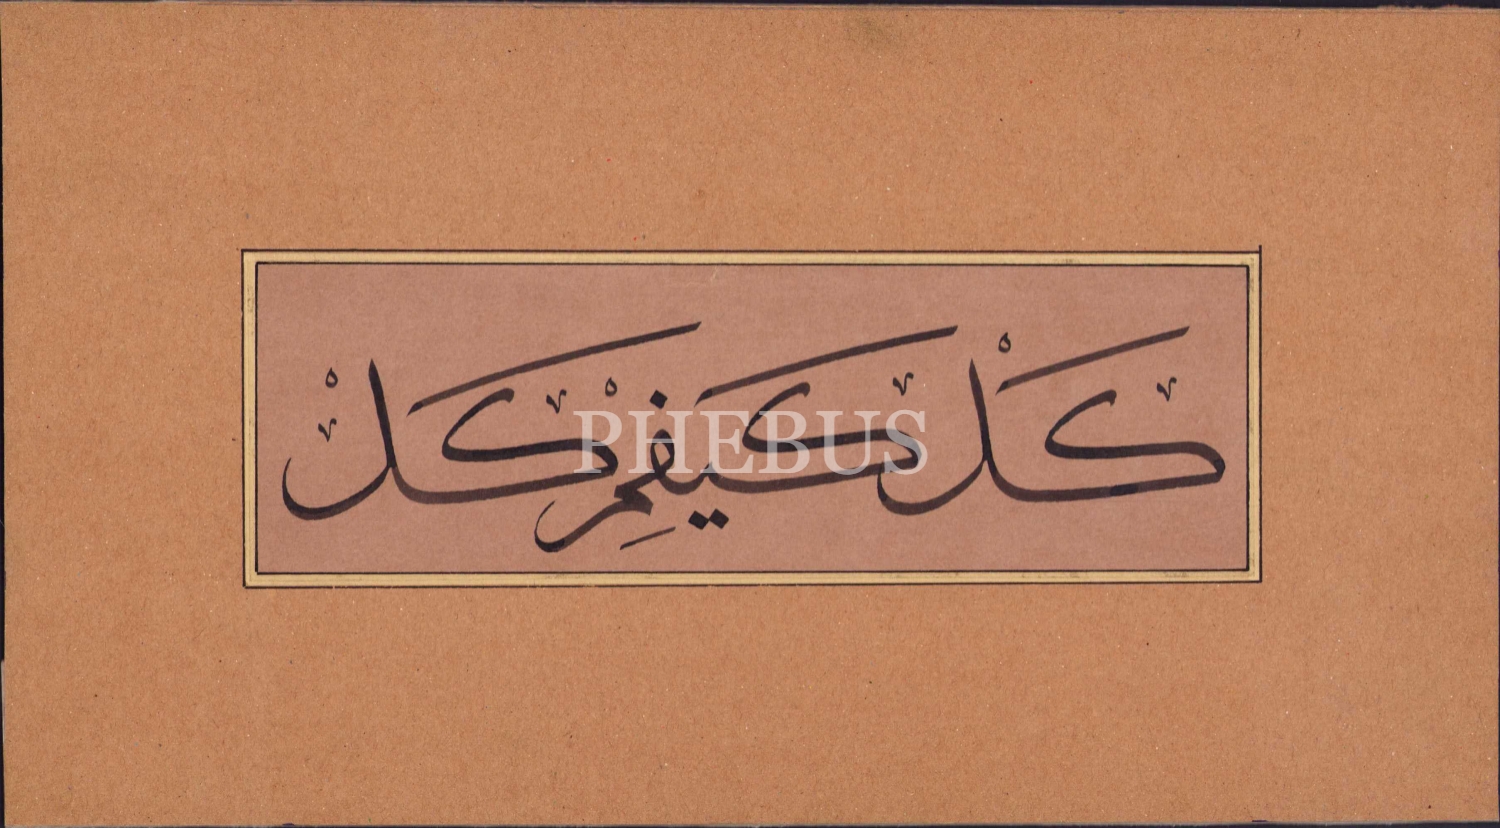 كلْ كيفِمْ كلْ
PHEBUS